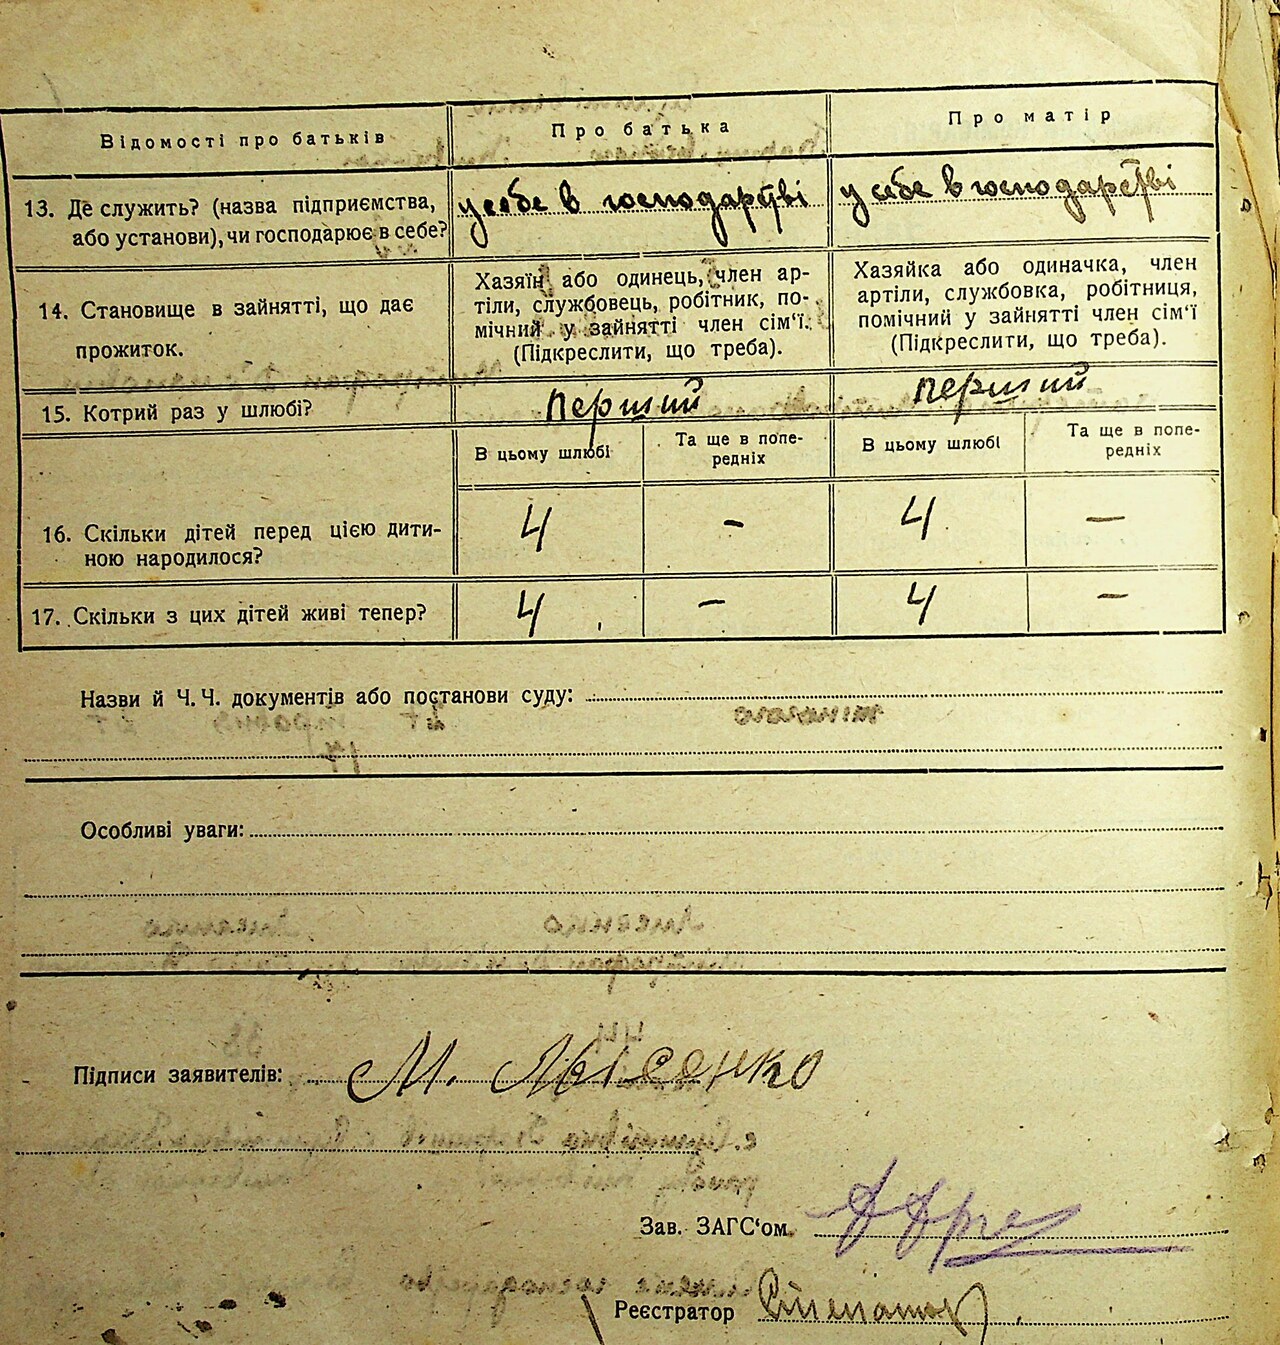 Відомості про батьків Про батька Про матір
13. Де служить? (назва підприємства, у себе в господарстві у себе в господарстві
або установи), чи господарює в себе?
14. Становище в зайнятті, що дає
прожиток.
Хазяїн або одинець, член ар-
тілі, службовець, робітник, по-
мічний у зайнятті член сім'ї.
(Підкреслити, що треба).
Хазяйка або одиначка, член
артіли, службовка, робітниця,
помічний у зайнятті член сім'ї
(Підкреслити, що треба).
15. Котрий раз у шлюбі? перший перший
В цьому шлюбі Та ще в попе-
редніх В цьому шлюбі Та ще в попе-
редніх
16. Скільки дітей перед цією дити- 4 – 4 –
ною народилося?
17. Скільки з цих дітей живі тепер? 4 – 4 –
Назви й Ч. Ч. документів або постанови суду:
Особливі уваги:
Підписи заявителів: М. Лысенко
Зав. ЗАГС'ом
Реєстратор